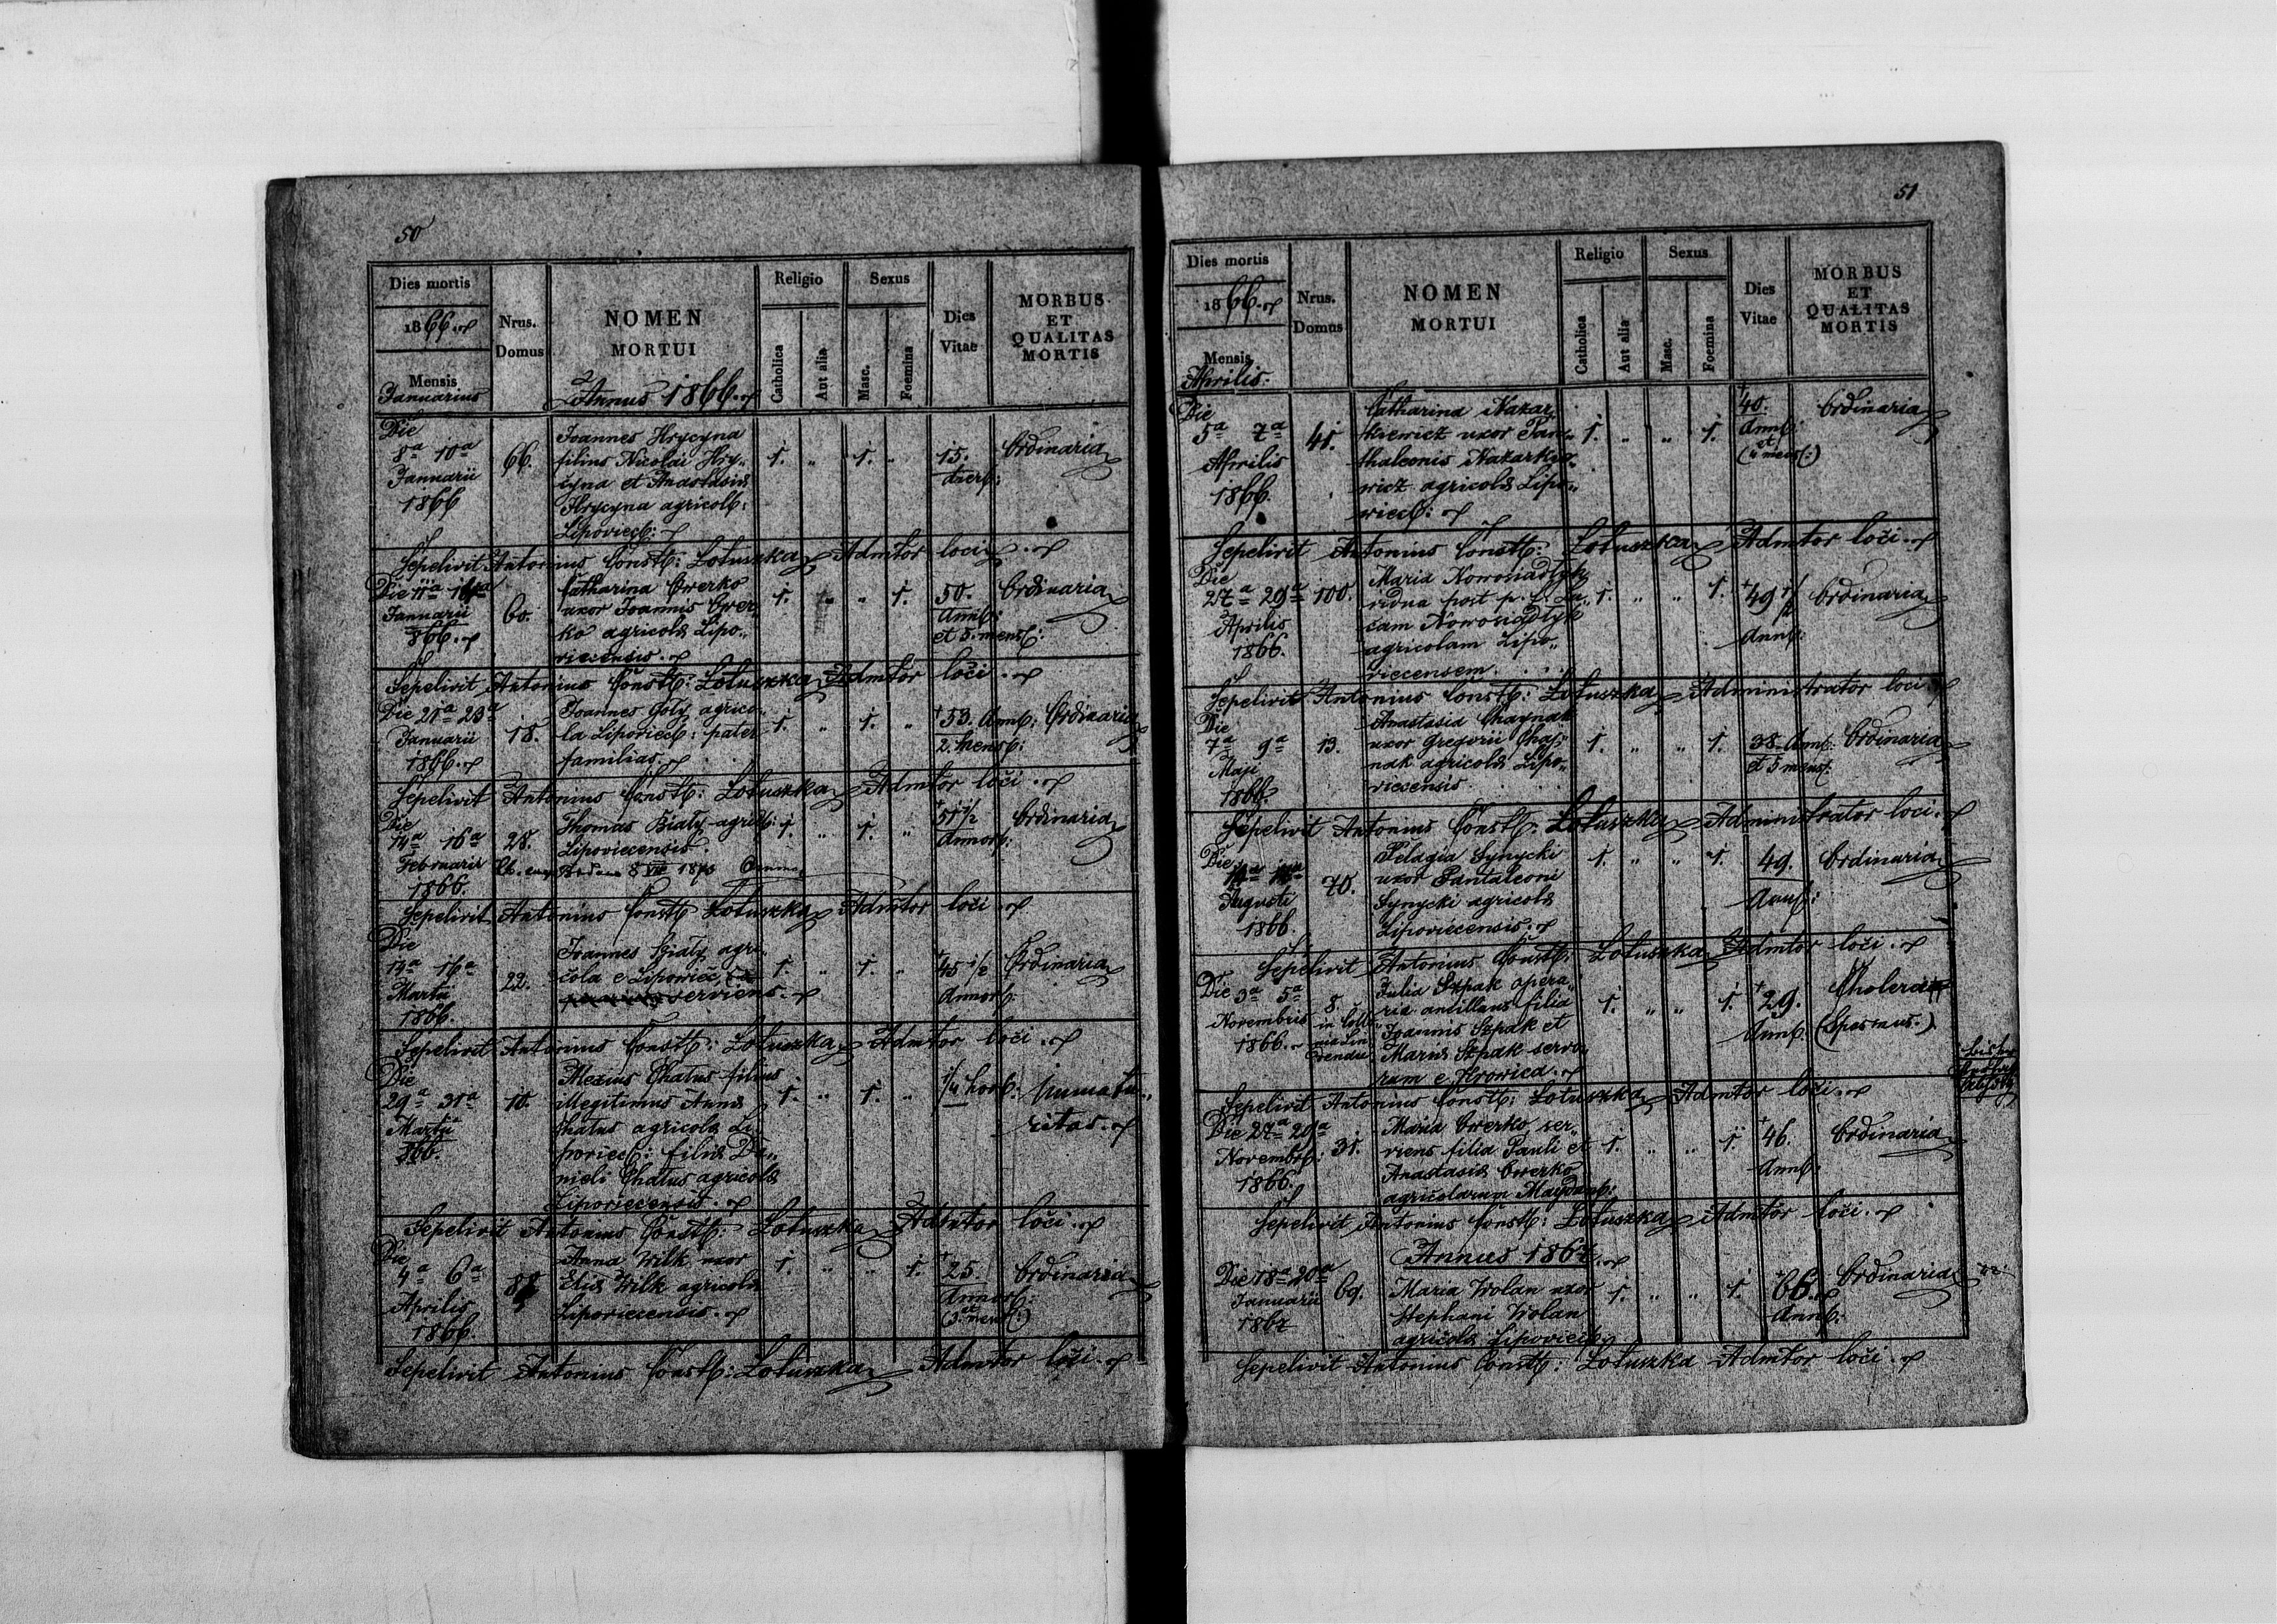 50
Dies mortis
1866.
Mensis
Januarius
Nrus.
Domus
NOMEN
MORTUI
Annus 1866.
Religio
Catholica
Aut alia
Sexus
Masc.
Foemina
Dies
Vitae
MORBUS
ET
QUALITAS
MORTIS
Die
8a 10a
Januarii
1866
66.
Joannes Hrycyna
filius Nicolai Hry„
cyna et Anastasiæ
Hrycyna agricolb:
Lipoviecb:
1. „ 1. „
15.
dierb:
Ordinaria
Sepelivit Antonius Constb: Lotuszka Admtor loci.
Die 11a
Januarii
866.
60.
Catharina Cwerko
uxor Joannis Cwer
ko agricolæ Lipo„
viecensis.
1. „ „ 1.
50.
Annb:
et 5. mensb:
Ordinaria
Sepelivit Antonius Constb: Lotuszka Admtor loci.
Die 21a 23a
Januarii
1866.
18.
Joannes Goly agrico„
la Lipoviecb: pater
familias.
1. „ 1. „
+53. Annb:
2. mensb:
Ordinaria
Sepelivit Antonius Constb: Lotuszka Admtor loci.
Die
14a 16a
Februarii
1866.
28.
Thomas Bialy agricb:
Lipoviecensis.
8 VII 1870
1. „ 1. „
+51 1/2
Annorb:
Ordinaria
Sepelivit Antonius Constb: Lotuszka Admtor loci.
Die
14a 16a
Martii
1866.
22.
Joannes Bialy agri„
cola e Lipowiec,
serviens.
1. „ 1. „
+45 1/2
Annorb:
Ordinaria
Sepelivit Antonius Constb: Lotuszka Admtor loci.
Die
29a 31a
Martii
866.
10.
Alexius Chatus filius
illegitimus Annæ
Chatus agricolæ Li„
poviecb: filiæ Da„
nieli Chatus agricolæ
Lipoviecensis.
1. „ 1. „
1/4 horb:
Immatu„
ritas.
Sepelivit Antonius Constb: Lotuszka Admtor loci.
Die
4a 6a
Aprilis
1866.
Anna Wilk uxor
Eliæ Wilk agricolæ
Lipoviecensis.
1. „ „ 1.
+25.
Annorb:
et
(3 mensb:)
Ordinaria
Sepelivit Antonius Constb: Lotuszka Admtor loci.
51
Dies mortis
1866.
Mensis
Aprilis.
Nrus.
Domus
NOMEN
MORTUI
Religio
Catholica
Aut alia
Sexus
Masc.
Foemina
Dies
Vitae
MORBUS
ET
QUALITAS
MORTIS
Die
5a 7a
Aprilis
1866.
41.
Catharina Nazar
kiewicz uxor Pan„
thaleonis Nazarkie„
wicz agricolæ Lipo„
viecb:
1. „ „ 1.
+40.
Annb:
et
(4 mensb:)
Ordinaria
Sepelivit Antonius Constb: Lotuszka Admtor loci.
Die
27a 29a
Aprilis
1866.
100.
Maria Nowosiadlyk
vidua post p. d. Lu„
cam Nowosiadlyk
agricolam Lipo„
viecensem.
1. „ „ 1.
+49 1/2
Annb:
Ordinaria
Sepelivit Antonius Constb: Lotuszka Administrator loci.
Die
7a 9a
Maji
1866.
13.
Anastasia Chaynak
uxor Gregorii Chay„
nak agricolæ Lipo„
viecensis.
1. „ „ 1.
38. Annb:
et 5 mensb:
Ordinaria
Sepelivit Antonius Constb: Lotuszka Administrator loci.
Die
Augusti
1866.
70.
Pelagia Synycki
uxor Pantaleoni
Synycki agricolæ
Lipoviecensis.
1. „ „ 1.
49.
Annb:
Ordinaria
Sepelivit Antonius Constb: Lotuszka Admtor loci.
Die 3a 5a
Novembris
1866.
8.
Julia Szpak opera„
ria ancillans filia
Joannis Szpak et
Mariæ Szpak servo„
rum e Hrowica.
1. „ „ 1.
+29.
Annb.
Cholera
(Spasmus.)
Sepelivit Antonius Constb: Lotuszka Admtor loci.
Die 27a 29a
Novembrb:
1866.
31.
Maria Cwerko ser„
viens filia Pauli et
Anastasiæ Cwerko
agricolarum Maydanb:
1. „ „ 1.
+46.
Annb:
Ordinaria
Sepelivit Antonius Constb: Lotuszka Admtor loci.
Annus 1867.
Die 18a 20a
Januarii
1867
69.
Maria Wolan uxor
Stephani Wolan
agricolæ Lipoviecb.
1. „ „ 1.
+66.
Annb:
Ordinaria
Sepelivit Antonius Constb: Lotuszka Admtor loci.